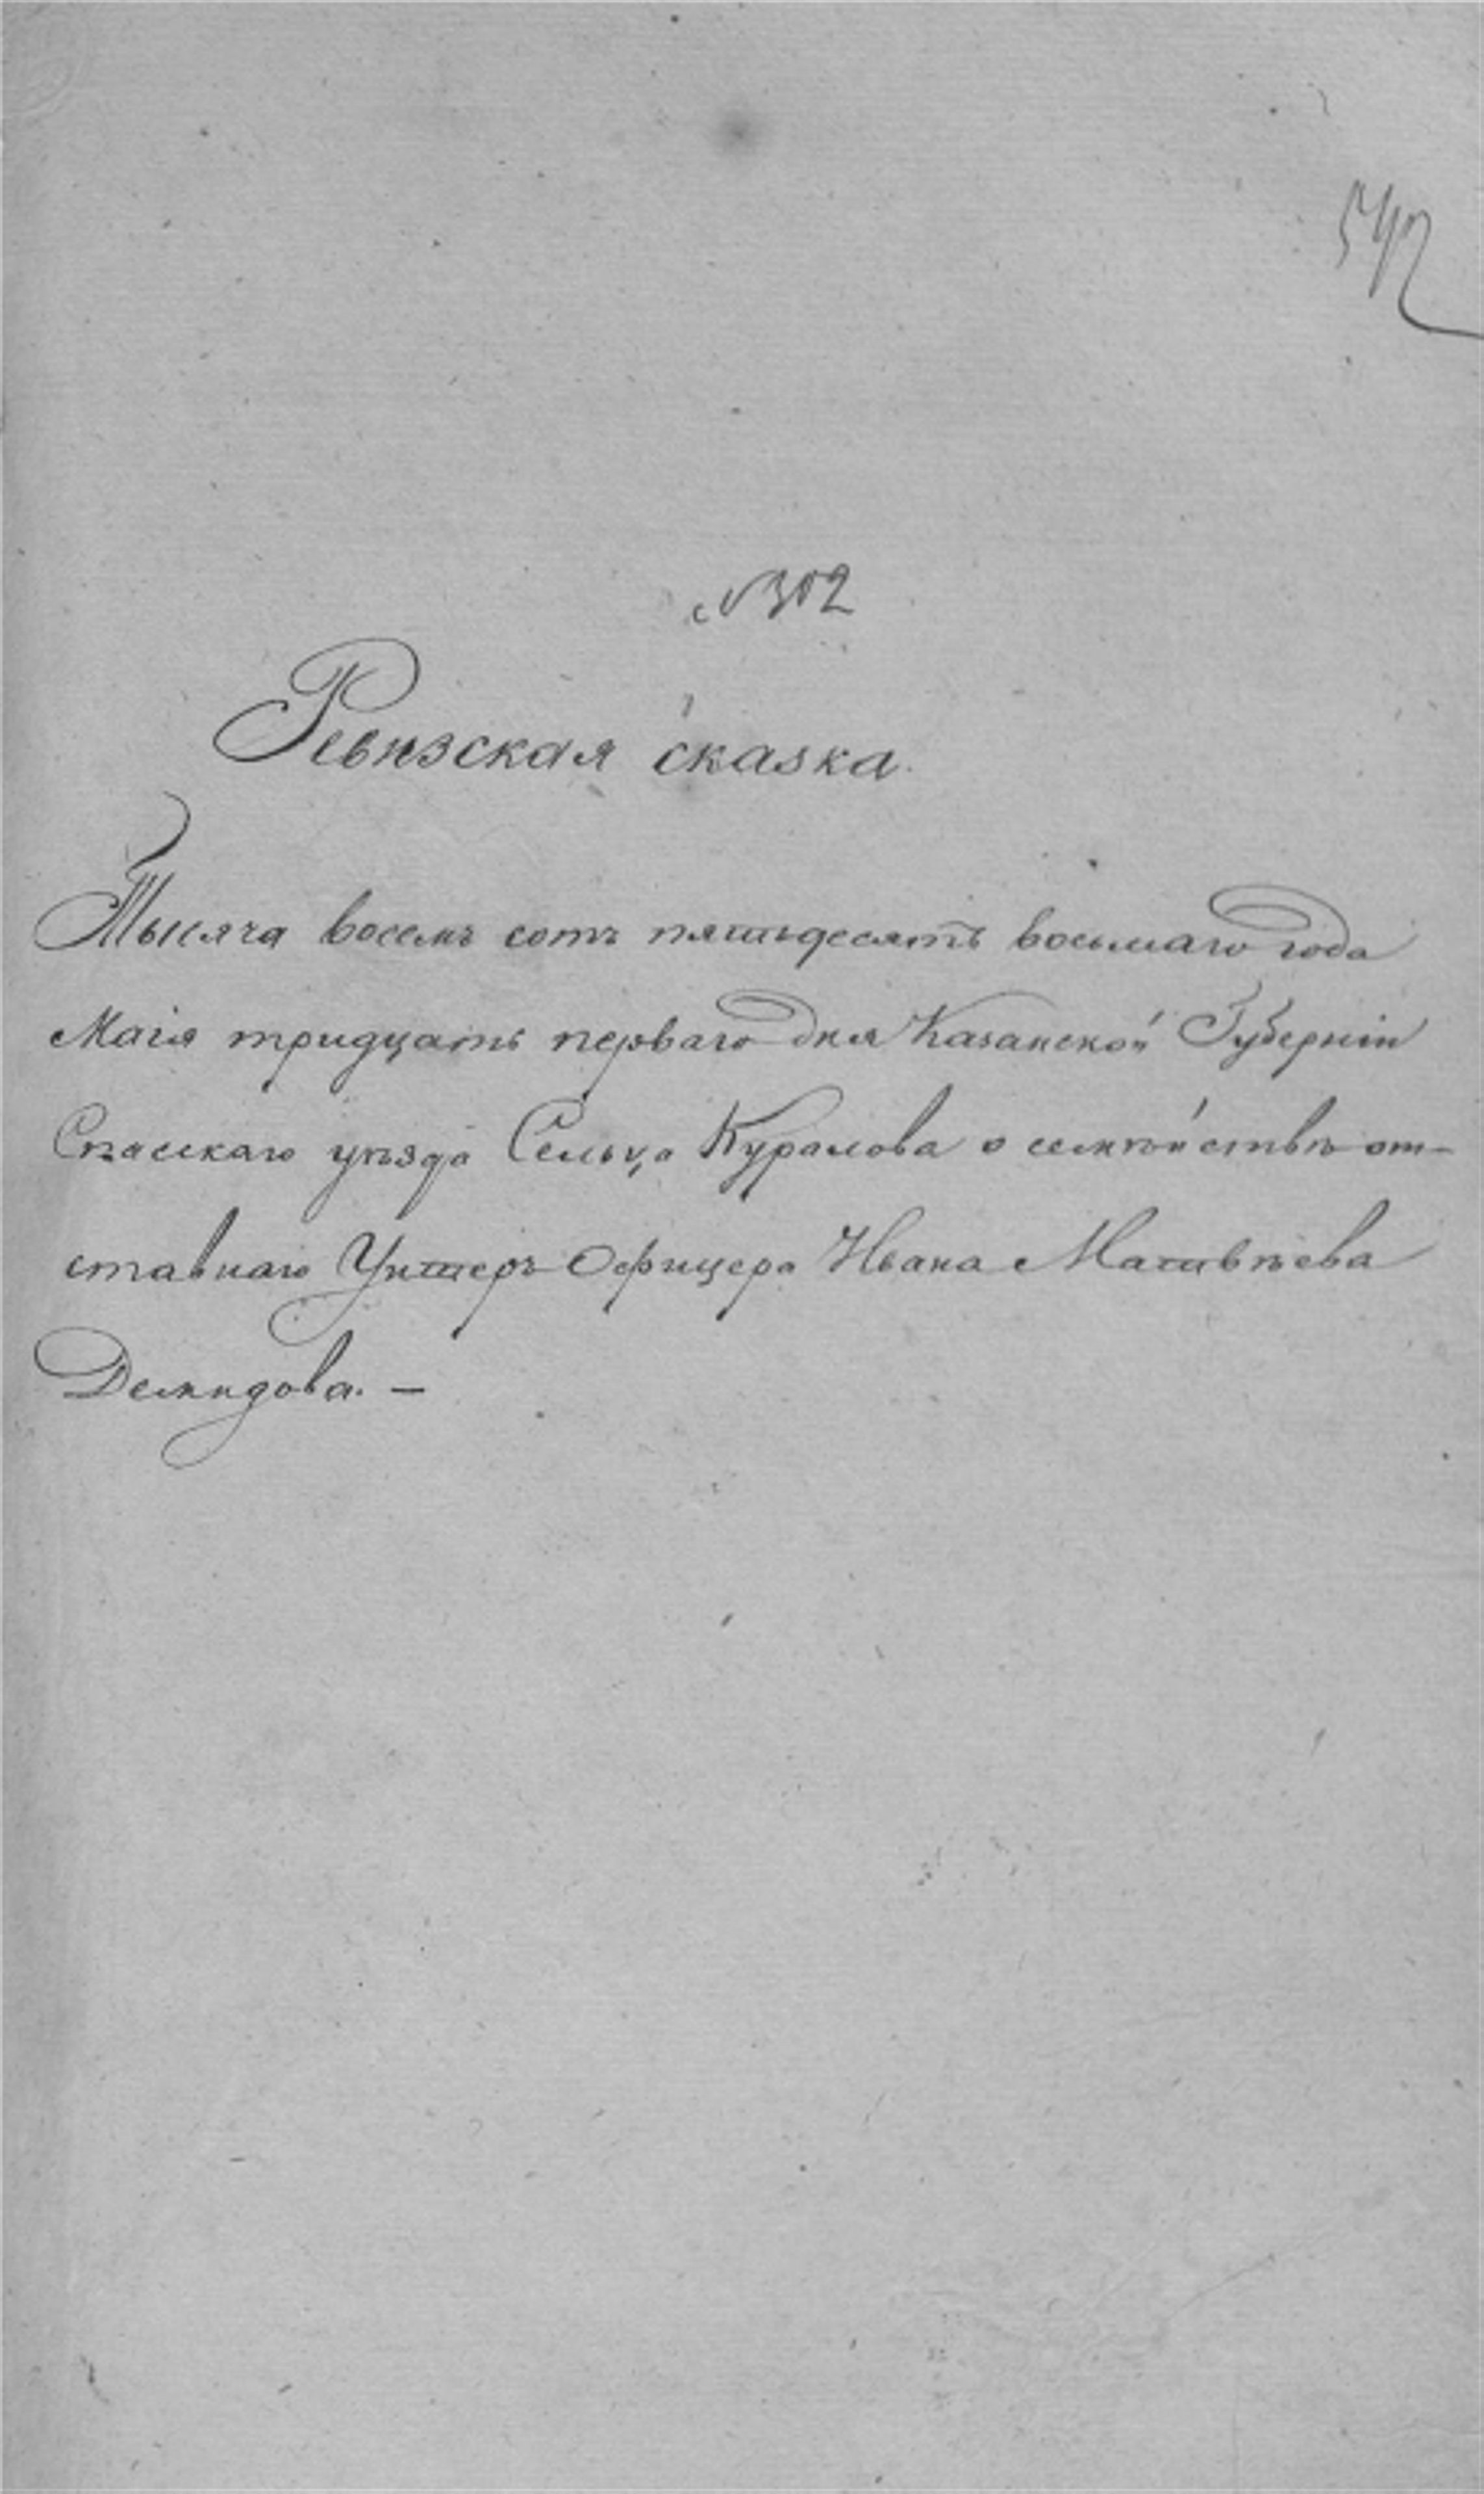 542
№ 302
Ревизская сказка.
Тысяча восемь сотъ пятьдесятъ восьмаго года
Маія тридцать перваго дня Казанской Губерніи
Спасскаго уѣзда Сельца Курамова о семѣйствѣ от-
ставнаго Унтеръ Офицера Ивана Матвѣева
Демидова. —